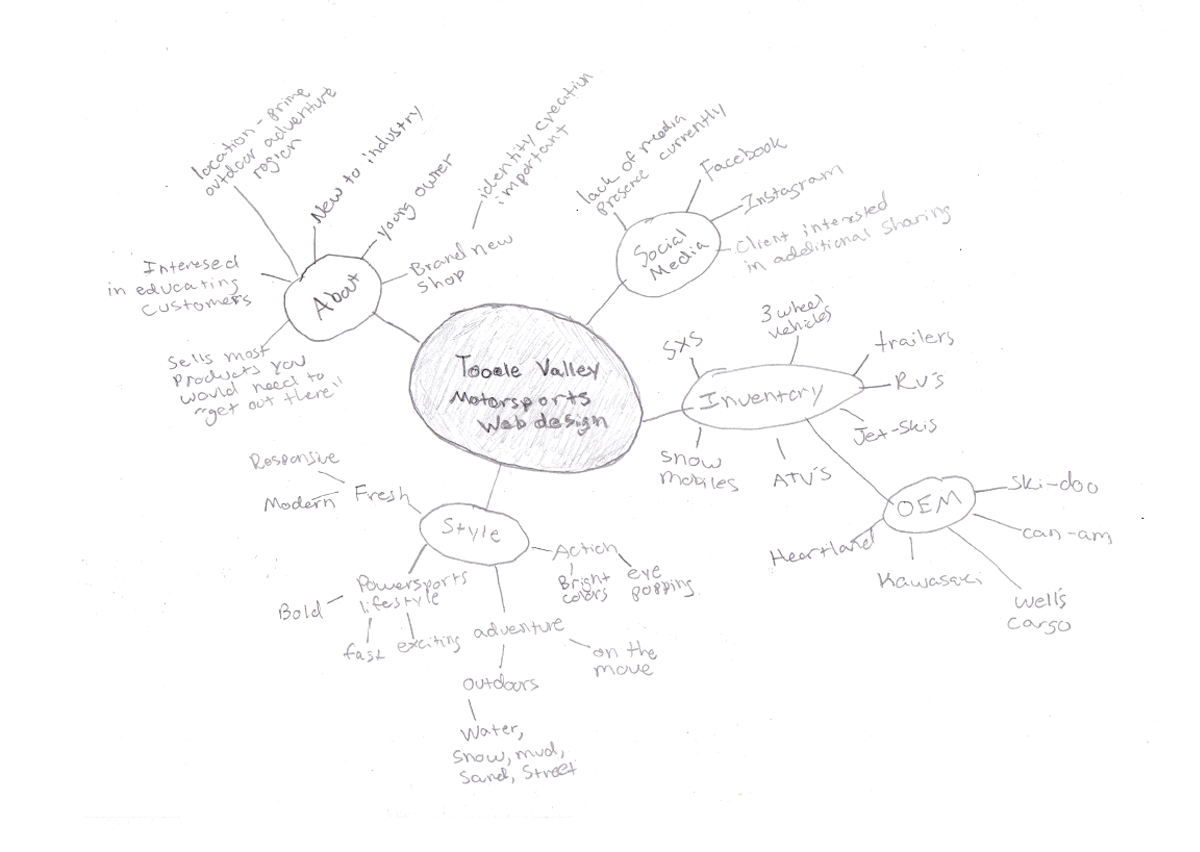 Tooele Valley
Motorsports
Web design
About
location - prime
outdoor adventure
region
New to industry
young owner
identity creation
important
Brand new
shop
Interesed
in educating
customers
Sells most
products you
would need to
"get out there"
Social
Media
lack of media
presence currently
Facebook
Instagram
Client interested
in additional sharing
Inventory
SXS
3 wheel
vehicles
trailers
RV's
Jet-skis
ATV's
snow
mobiles
OEM
Ski-doo
can-am
well's
cargo
Kawasaki
Heartland
Style
Responsive
Modern
Fresh
Powersports
lifestyle
Bold
fast
exciting
Action
Bright
colors
eye
popping
adventure
on the
move
outdoors
Water,
snow, mud,
sand, street